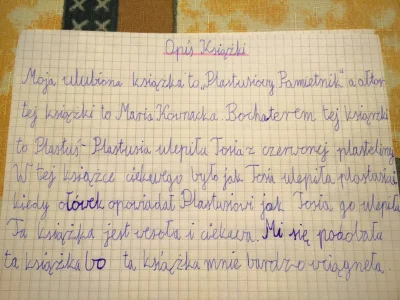 Opis Książki
Moja ulubiona książka to „Plastusiowy Pamiętnik" a autor
tej książki to Maria Kownacka. Bochaterem tej książki
to Plastuś - Plastusia ulepiła Tosia z czerwonej plasteliny
W tej książce ciekawego było jak Tosia ulepiła plastusia i
kiedy ołówek opowiadał Plastusiowi jak Tosia go ulepiła
Ta książka jest wesoła i ciekawa. Mi się podobała
ta książka bo ta książka mnie bardzo wciągnęła.